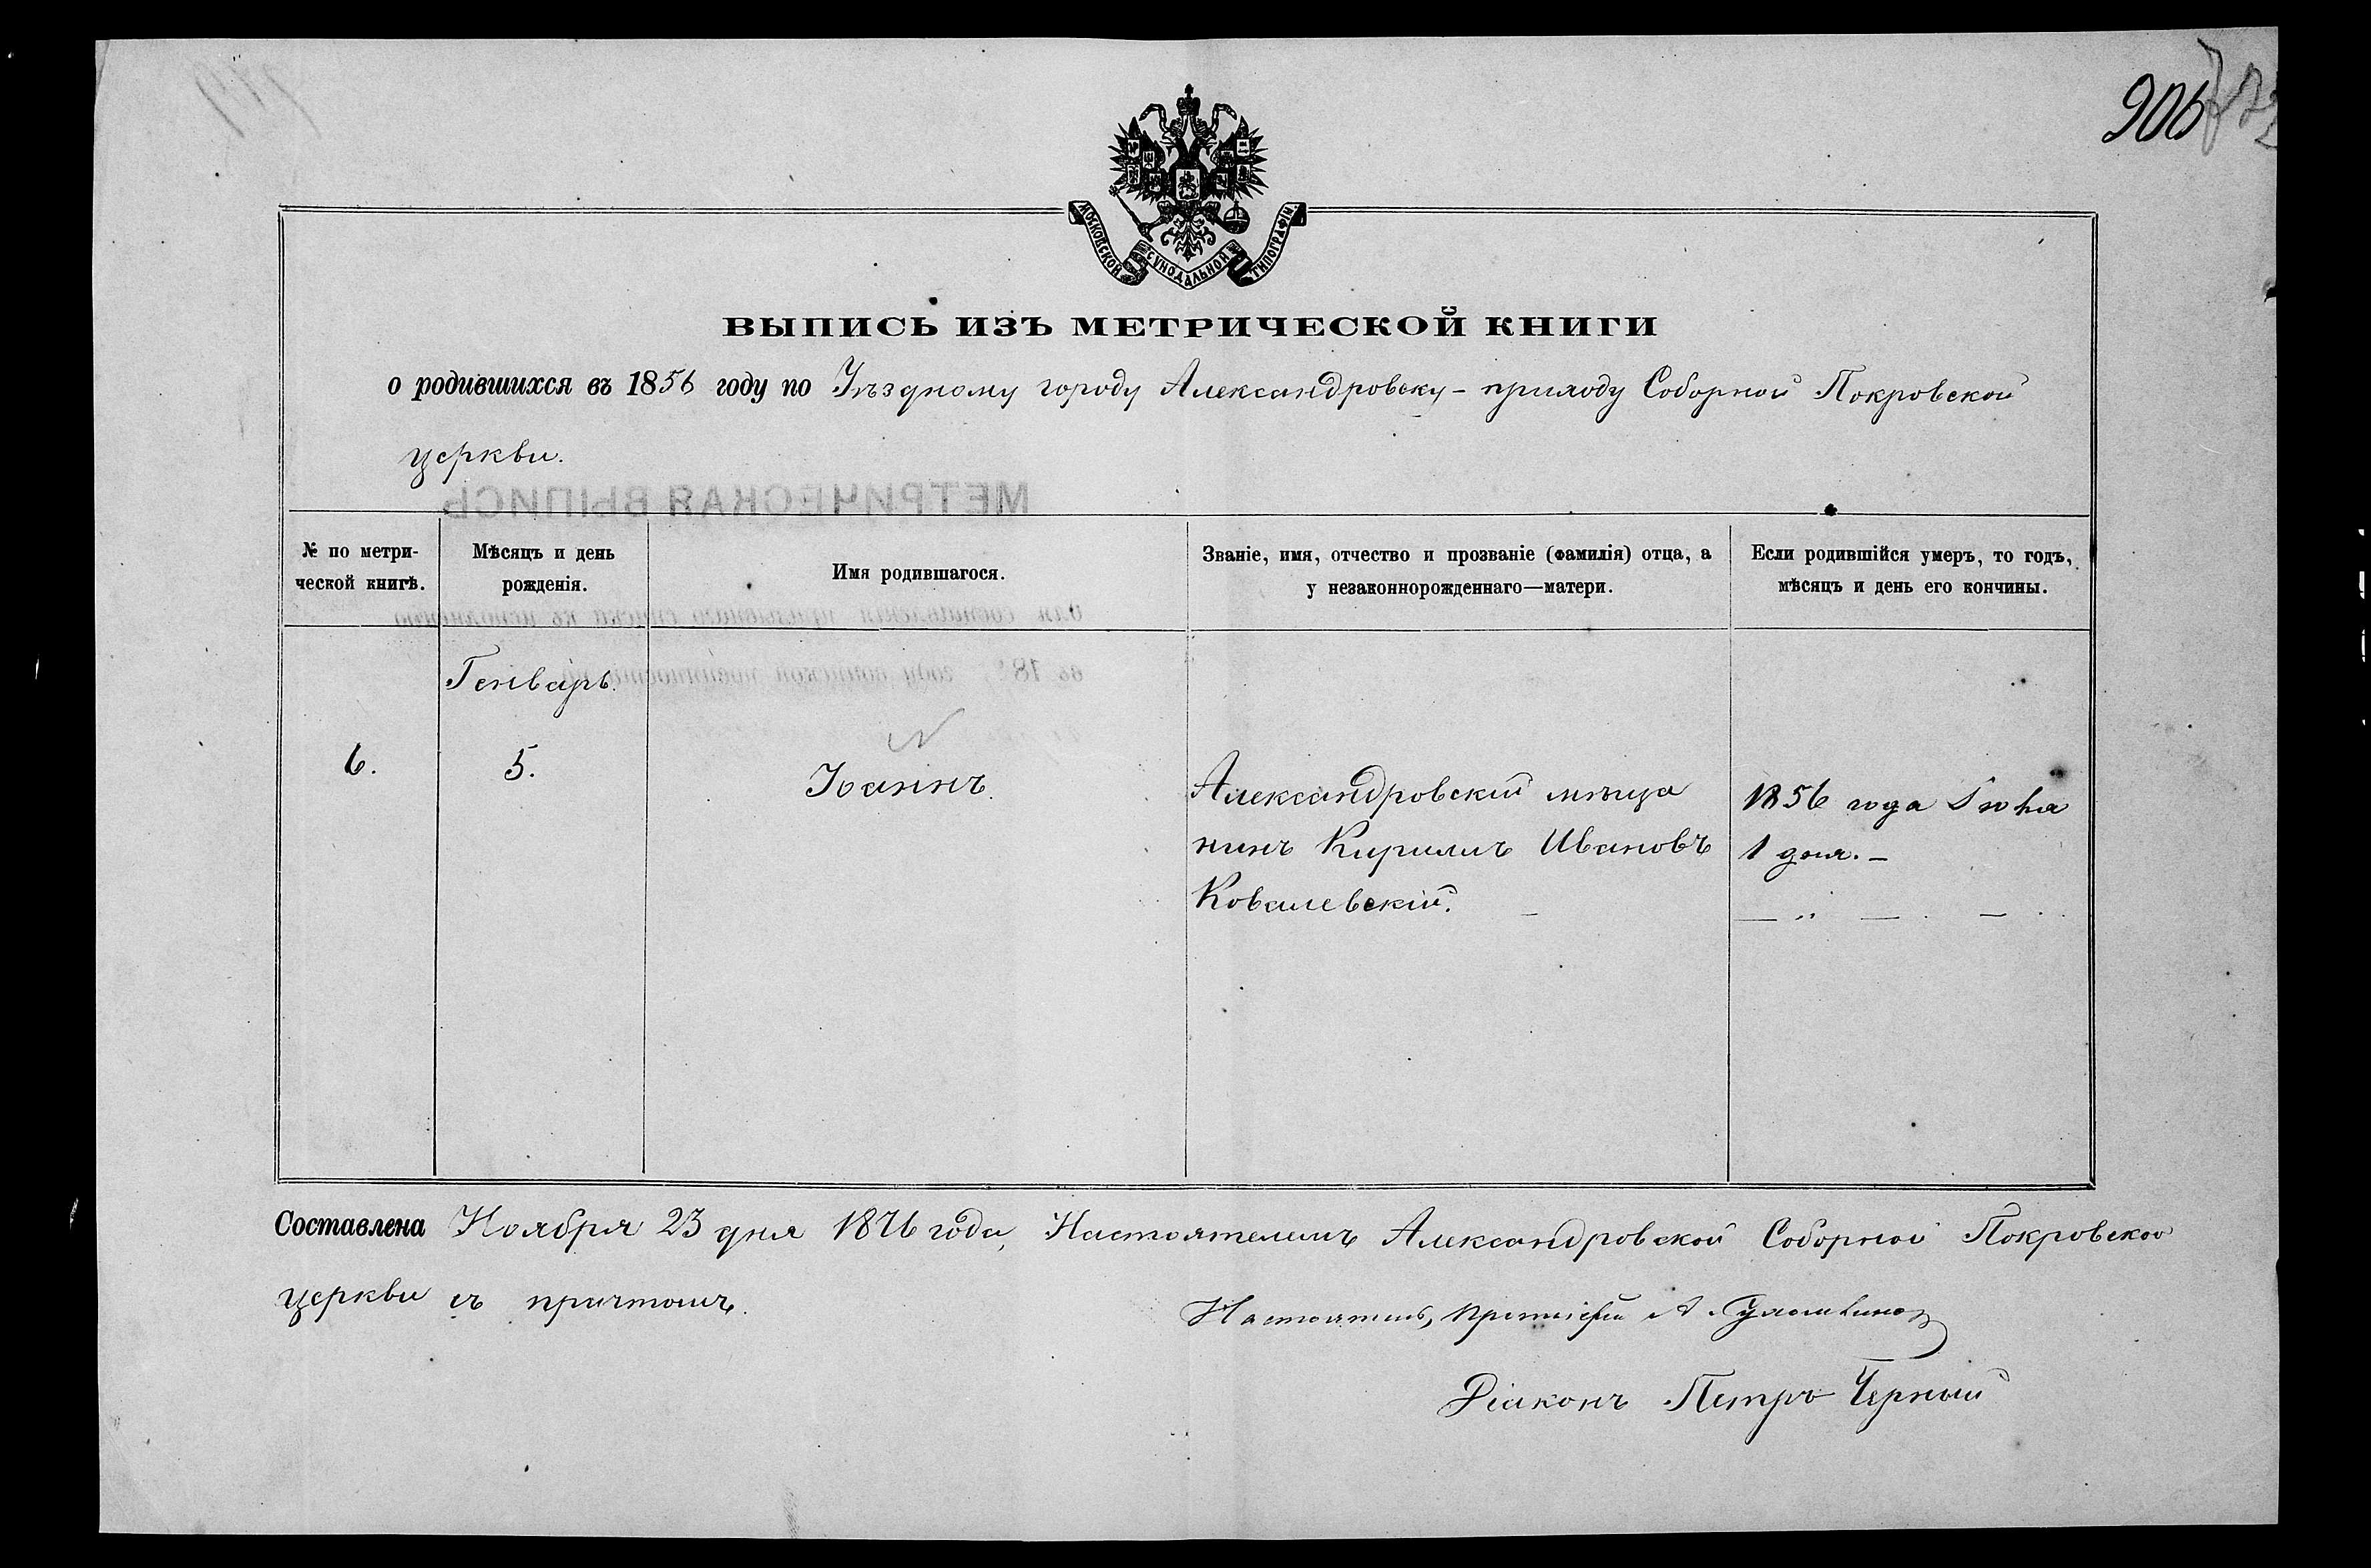 906
МОСКОВСКОЙ СУНОДАЛЬНОЙ ТИПОГРАФІИ
ВЫПИСЬ ИЗЪ МЕТРИЧЕСКОЙ КНИГИ
о родившихся въ 1856 году по Уѣздному городу Александровску - приходу Соборной Покровской
церкви.
МЕТРИЧЕСКАЯ ВЫПИСЬ
№ по метри-
ческой книгѣ.
Мѣсяцъ и день
рожденія.
Имя родившагося.
Званіе, имя, отчество и прозваніе (фамилія) отца, а
у незаконнорожденнаго—матери.
Если родившійся умеръ, то годъ,
мѣсяцъ и день его кончины.
Генварь.
6.
5.
Іоаннъ.
Александровскій мѣща
нинъ Кирилъ Ивановъ
Ковалевскій.
1856 года
1 дня. —
Составлена Ноября 23 дня 1876 года, Настоятелемъ Александровской Соборной Покровской
церкви съ причтомъ.
Настоятель, протоіерей А.
Діаконъ Петръ Черный